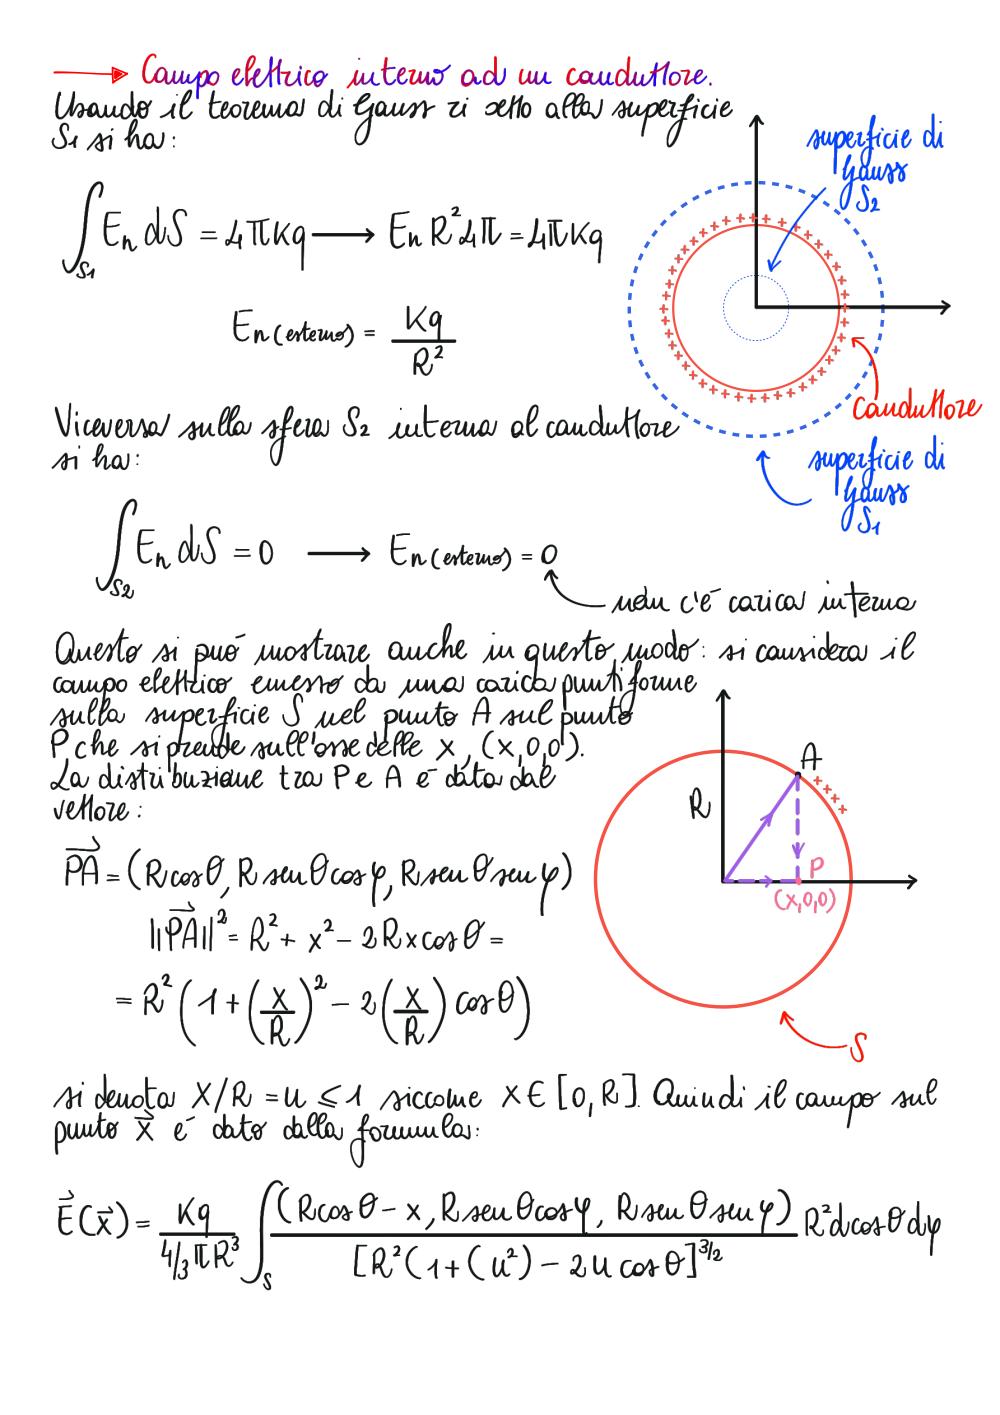 Campo elettrico interno ad un conduttore.
Usando il teorema di Gauss rispetto alla superficie
S1 si ha:
superficie di
Gauss
S2
∫S1 En dS = 4πKq → En R²4π = 4πKq
En (esterno) = Kq / R²
conduttore
Viceversa sulla sfera S2 interna al conduttore
si ha:
superficie di
Gauss
S1
∫S2 En dS = 0 → En (esterno) = 0
non c'è carica interna
Questo si può mostrare anche in questo modo: si considera il
campo elettrico emesso da una carica puntiforme
sulla superficie S nel punto A sul punto
P che si prende sull'asse delle x, (x,0,0).
La distribuzione tra P e A è data dal
vettore:
A
+ + + +
R
P
(x,0,0)
PA = (R cosθ, R senθ cosφ, R senθ senφ)
||PA||² = R² + x² - 2Rx cosθ =
= R² (1 + (x/R)² - 2(x/R) cosθ)
S
si denota x/R = u ⩽ 1 siccome x ∈ [0,R]. Quindi il campo sul
punto x è dato dalla formula:
E(x) = Kq / 4/3 πR³ ∫S (R cosθ - x, R senθ cosφ, R senθ senφ) / [R²(1+(u²) - 2u cosθ]^3/2 R² dcosθ dφ